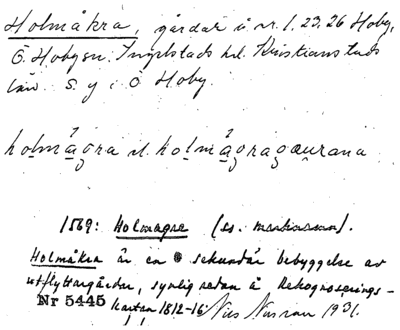 Holmåkra, gårdar å nr. 1. 23. 26 Hoby,
Ö. Hobysn. Ingelstads hd. Kristianstads
län. S. y. i Ö. Hoby.
holmågra el. holmågragaurana
1569: Holmagre (ss.
Holmåkra är en sekundär bebyggelse av
utflyttargårdar, synlig redan å Rekognoserings-
Nr 5445 kartan 1812-16 Nils 1931.